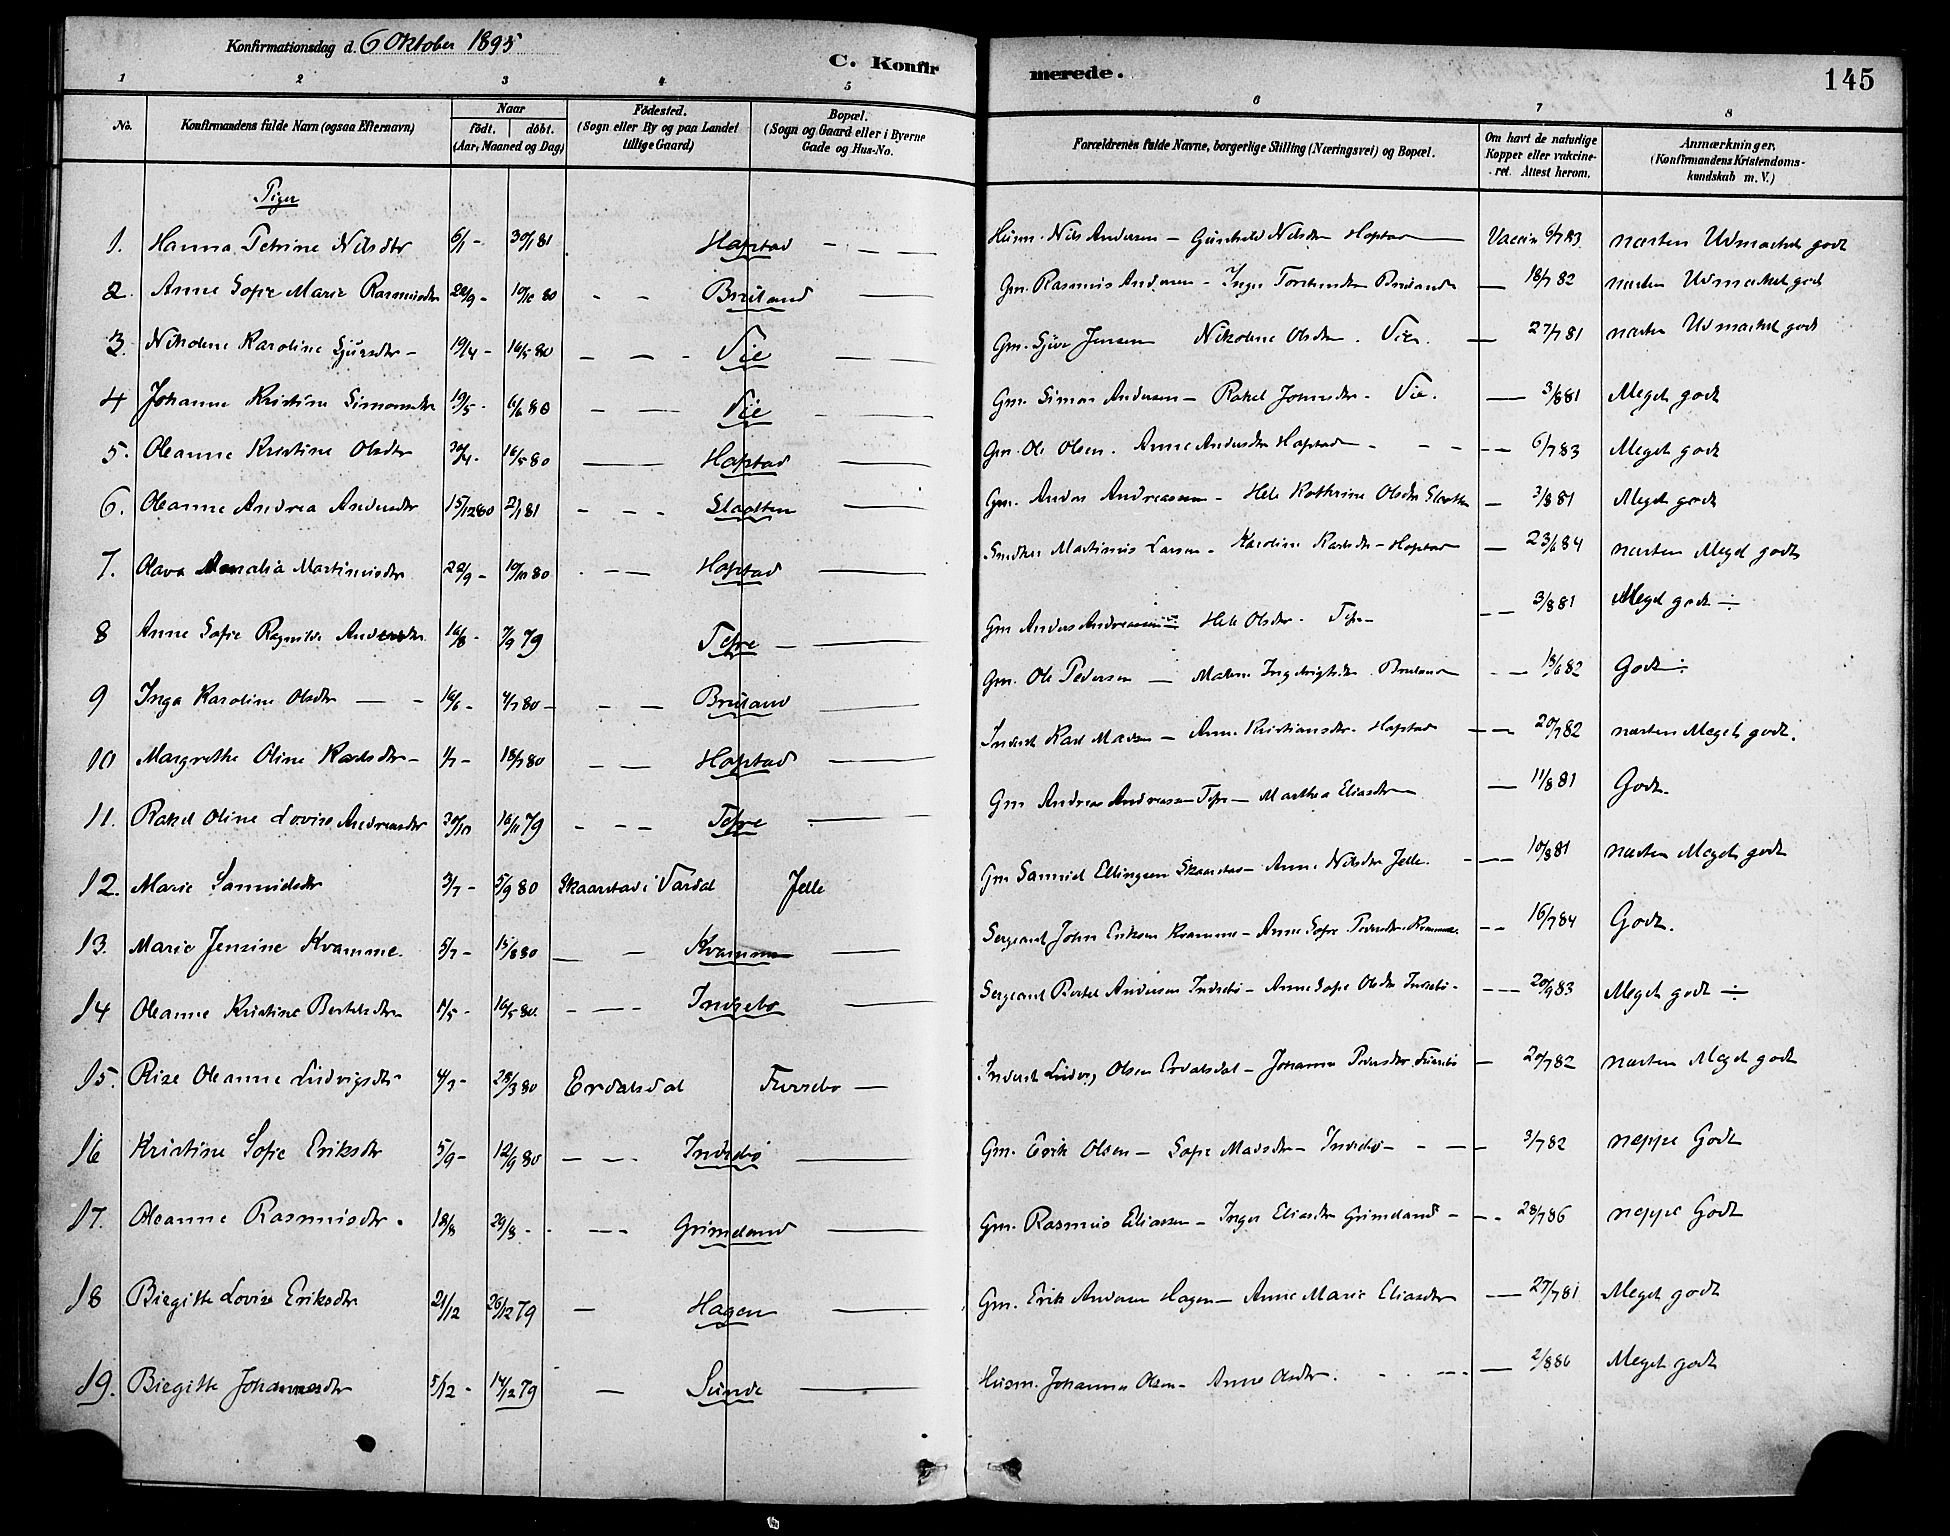 Konfirmationsdag d. 6 Oktober 1895
C. Konfirmerede.
145
1 2 3 4 5 6 7 8
No. Konfirmandens fulde Navn (ogsaa Efternavn) Naar født. døbt. (Aar, Maaned og Dag) Fødested. (Sogn eller By og paa Landet tillige Gaard) Bopæl. (Sogn og Gaard eller i Byerne Gade og Hus-No. Forældrenes fulde Navne, borgerlige Stilling (Næringsvei) og Bopæl. Om havt de naturlige Kopper eller vakcineret. Attest herom. Anmærkninger. (Konfirmandens Kristendomskundskab m. V.)
Piger
1. Hanna Petrine Nilsdtr 6/1 - 30/1 81 Hafstad - - - Husm. Nils Andersen - Gunhild Nilsdtr Hafstad Vaccin 6/7 83. næsten Udmærket godt
2. Anne Sofie Marie Rasmusdtr 22/9 - 10/10 80 - - Bruland — Gm. Rasmus Andersen - Inger Bruland — 18/7 82 næsten Udmærket godt
3. Nikoline Karoline Sjursdtr - 19/4 - 16/5 80 - - - Vie — Gm. Sjur Jensen Nikoline Olsdtr. Vie. — 27/7 81 næsten Udmærket godt
4 Johanne Kristine Simonsdtr 19/5 - 6/6 80 - — Vie - — Gm. Simon Andersen - Rakel Johnsdtr - Vie. — 3/8 81 Meget godt
5. Oleanne Kristine Olsdtr 30/4 - 16/5 80 — Hafstad — Gm. Ole Olsen. Anne Andersdtr Hafstad - - - -- 6/7 83 Meget godt
6. Oleanne Andrea Andersdtr 15/12 80 2/1 81 - - - Slaatten — Gm. Anders Andreassen - Hele Kathrine Olsdtr Slaatten - 3/8 81 Meget godt
7. Olava Amalia Martinusdtr 22/9 - 10/10 80 - - — Hafstad — Smedker Martinus Larsen - Karoline Karlsdtr - Hafstad — 23/6 84 næsten Meget godt
8 Anne Sofie Ragnilde Andersdtr 16/8 - 7/9 79 Tefre - — Gm Anders Andreassen - Hele Olsdtr - Tefre - -- 3/8 81 Meget godt ÷
9 Inga Karoline Olsdtr — - 16/6 - 4/7 80 - - — Bruland — Gm. Ole Pedersen — Malene Bruland - — 18/6 82 Godt ÷
10 Margrethe Oline Karlsdtr - 1/7 - 18/7 80 - — Hafstad — Inderst Karl Madsen - Anne Kristiansdtr. Hafstad — - 20/7 82 næsten Meget godt.
11. Rakel Oline Lovise Andreasdtr 30/10 16/11 79 - - - Tefre — Gm Andreas Andreassen Tefre - Marthea Eliasdtr — 11/8 81 Godt.
12. Marie Samuelsdtr 3/7 - 5/9 80 Skaarstad i Vardal Jelle Gm Samuel Ellingsen Skaarstad - Anne Nilsdtr Jelle. - — 10/8 81 næsten Meget godt
13. Marie Jensine Kvamme. 5/7 - 15/8 80 — - Kvamme — Sergeant John Eriksen Kvamme - Anne Sofie Pedersdtr Kvamme. -- 16/7 84 Godt.
14 Oleanne Kristine Bertelsdtr 1/5 - 16/5 80. - — — Indrebø — Sergeant Bertel Andersen Indrebø - Anne Sofie Olsdtr Indrebø - --- 20/9 83 Meget godt ÷
15. Rise Oleanne Ludvigsdtr 4/3 - 28/3 80 Erdalsdal Furrebø — Inderst Ludvig Olsen Erdalsdal - Johanne Pedersdtr Furrebø — 20/7 82 næsten Meget godt
16 Kristine Sofie Eriksdtr 5/9 - 12/9 80 — - - Indrebø — Gm. Erik Olsen - Sofie Madsdtr - Indrebø - - — - 3/7 82 neppe Godt
17. Oleanne Rasmusdtr. 18/8 29/8 - - — Grimeland — Gm. Rasmus Eliassen - Inger Eliasdtr Grimeland - - - 28/7 86 neppe Godt
18 Birgitte Lovise Eriksdtr 21/12 26/12 79 — Hagen — Gm. Erik Andersen Hagen - Anne Marie Eliasdtr — 27/7 81 Meget godt
19. Birgitte Johannesdtr 5/12 - 14/12 79 — Sunde — Husm. Johannes Olsen - Anne Olsdtr. - - -- — 2/8 86 Meget godt